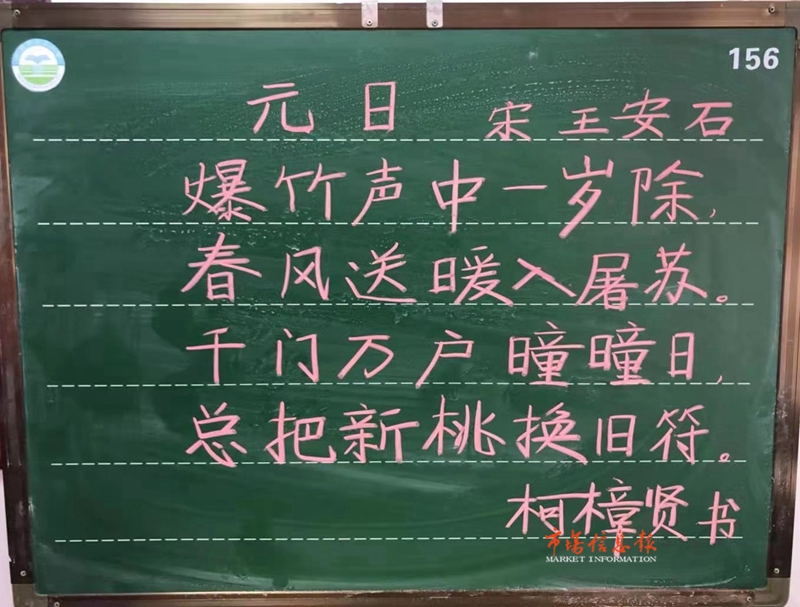 156
元日 宋 王安石
爆竹声中一岁除,
春风送暖入屠苏。
千门万户曈曈日,
总把新桃换旧符。
柯樟贤书
市场信息报
MARKET INFORMATION